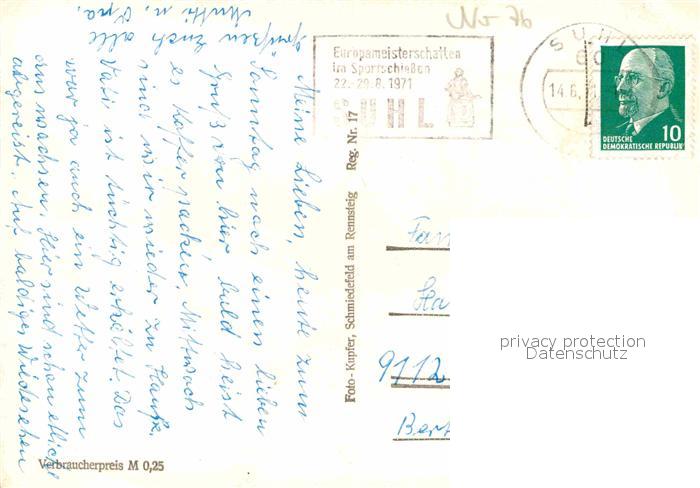 N-76
Europameisterschaften
im Sportschießen
22.-29.8.1971
SUHL
SUHL
14.6.
10
DEUTSCHE
DEMOKRATISCHE REPUBLIK
Meine Lieben, heute zum
Sonntag noch einen lieben
Gruß von hier bald heist
es Koffer packen. Mittwoch
sind wir wieder zu Hause.
Vati ist tüchtig erkältet. Das
war ja auch ein Wetter zum
aus wachsen. Hier sind schon etliche
abgereist. Auf baldiges Wiedersehen
grüßen Euch alle
Mutti u. Opa.
Foto-Kupfer, Schmiedefeld am Rennsteig Reg. Nr. 17
Fam
Ha
9112
Verbraucherpreis M 0,25
privacy protection
Datenschutz